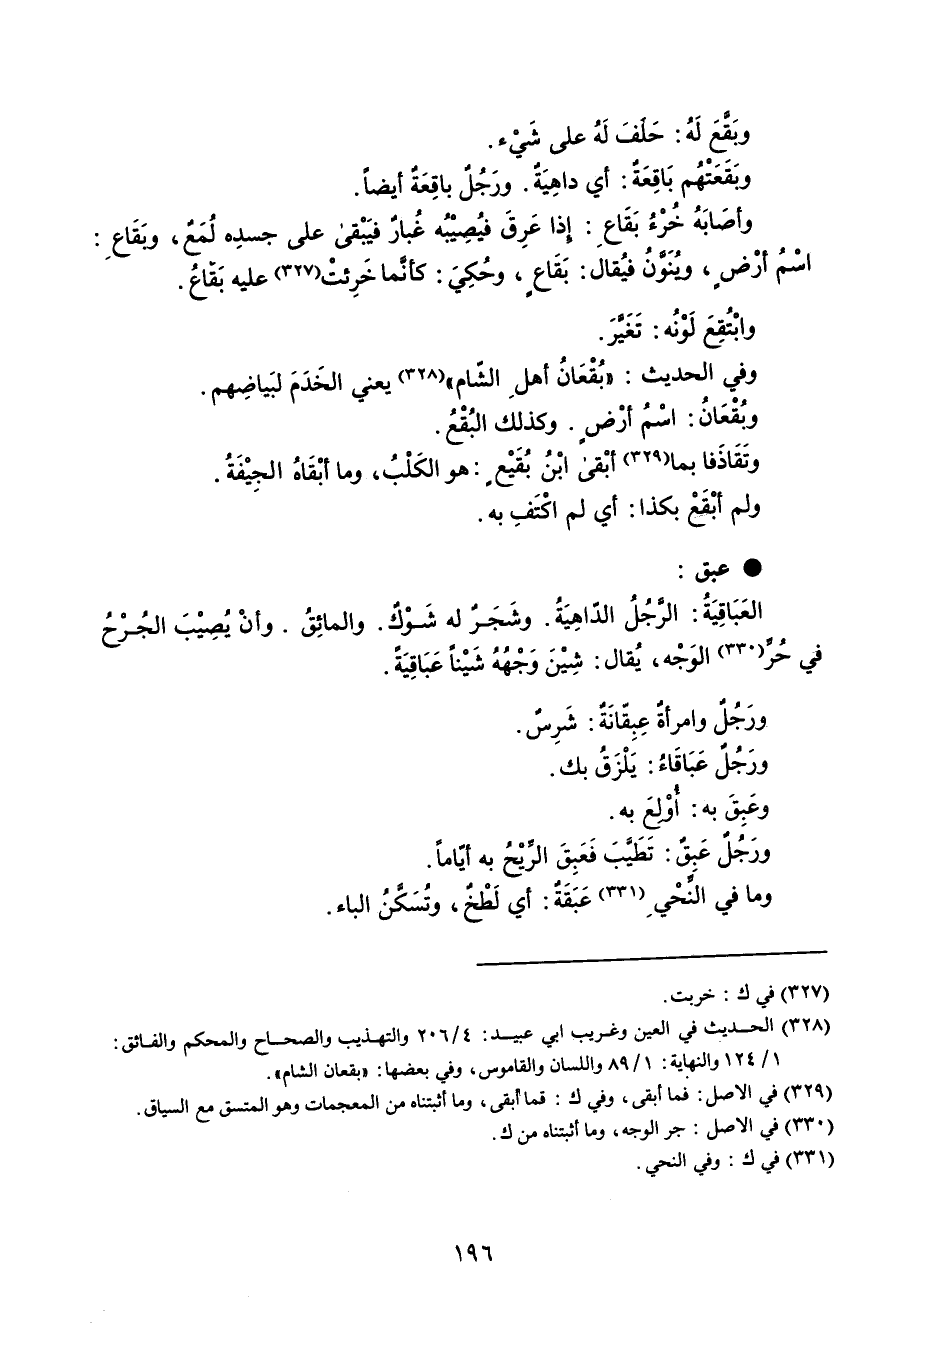 وبَقَّعَ لَهُ: حَلَفَ لَهُ على شَيْء.
وبَقَعَتْهُم بَاقِعَةٌ: أي داهِيَةٌ. ورَجُلٌ باقِعَةٌ أيضاً.
وأصَابَهُ خُرْءُ بَقَاعِ: إذا عَرِقَ فيُصِيْبُه غُبارٌ فيَبْقىٰ على جسدِه لُمَعٌ، وبَقَاعِ:
اسْمُ أرْضٍ، ويُنَوَّنُ فيُقال: بَقَاعٍ، وحُكِيَ: كأنَّما خَرِئتْ(٣٢٧) عليه بَقَاعُ.
وابْتُقِعَ لَوْنُه: تَغَيَّرَ.
وفي الحديث: «بُقْعَانُ أهلِ الشّام»(٣٢٨) يعني الخَدَمَ لبَياضِهم.
وبُقْعَانُ: اسْمُ أرْضٍ. وكذلك البُقْعُ.
وتَقَاذَفا بما(٣٢٩) أبْقىٰ ابْنُ بُقَيْعٍ: هو الكَلْبُ، وما أبْقَاهُ الجِيْفَةُ.
ولم أبْقَعْ بكذا: أي لم اكْتَفِ به.
● عبق:
العَبَاقِيَةُ: الرَّجُلُ الدّاهِيَةُ. وشَجَرٌ له شَوْكٌ. والماثِقُ. وأنْ يُصِيْبَ الجُرْحُ
في حُرِّ(٣٣٠) الوَجْه، يُقال: شِيْنَ وَجْهُهُ شَيْناً عَبَاقِيَةً.
ورَجُلٌ وامرأةٌ عِبِقّانَةٌ: شَرِسٌ.
ورَجُلٌ عَبَاقَاءُ: يَلْزَقُ بك.
وعَبِقَ به: أُوْلِعَ به.
ورَجُلٌ عَبِقٌ: تَطَيَّبَ فَعَبِقَ الرِّيْحُ به أيّاماً.
وما في النِّحْيِ(٣٣١) عَبَقَةٌ: أي لَطْخٌ، وتُسَكَّنُ الباء.
(٣٢٧) في ك: خربت.
(٣٢٨) الحديث في العين وغريب ابي عبيد: ٤/ ٢٠٦ والتهذيب والصحاح والمحكم والفائق:
١/ ١٢٤ والنهاية: ١/ ٨٩ واللسان والقاموس، وفي بعضها: «بقعان الشام».
(٣٢٩) في الاصل: فما أبقى، وفي ك: قما أبقى، وما أثبتناه من المعجمات وهو المتسق مع السياق.
(٣٣٠) في الاصل: جر الوجه، وما أثبتناه من ك.
(٣٣١) في ك: وفي النحي.
١٩٦